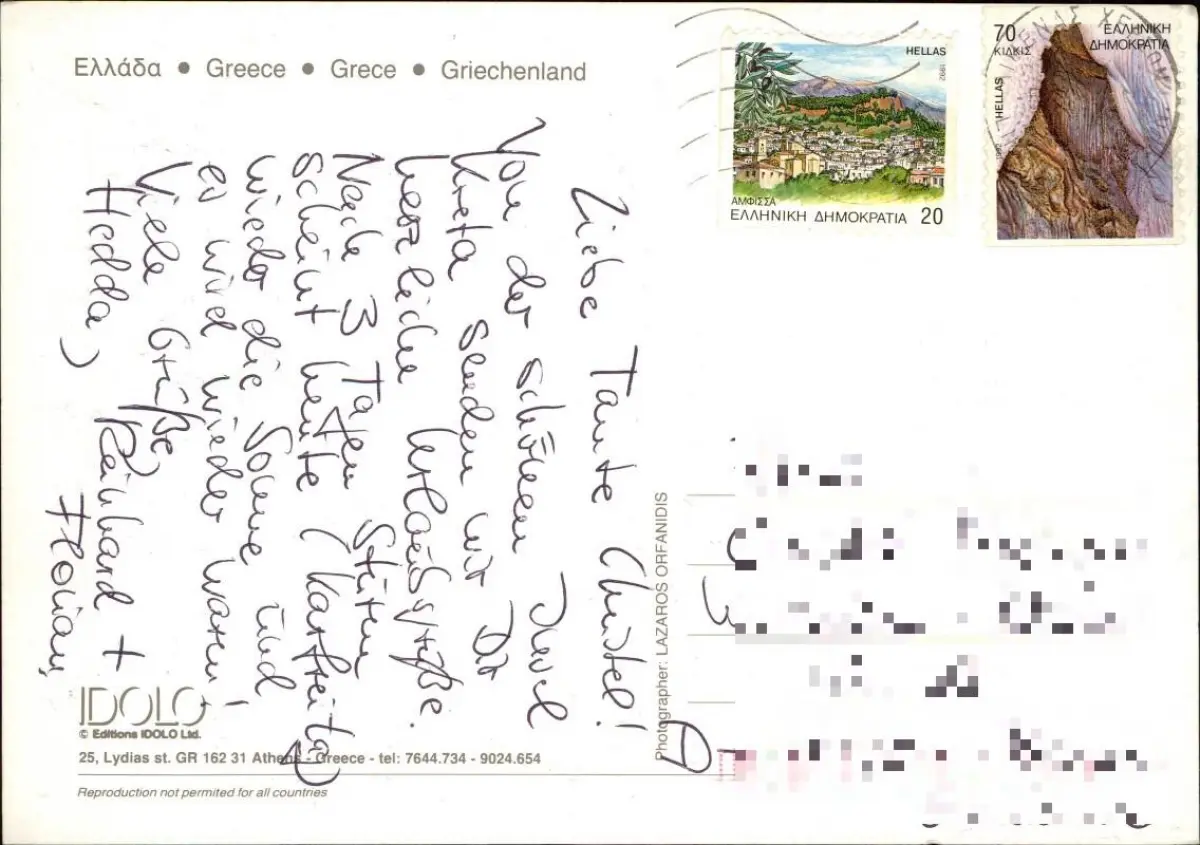 Ελλάδα • Greece • Grece • Griechenland
HELLAS
1992
ΑΜΦΙΣΣΑ
ΕΛΛΗΝΙΚΗ ΔΗΜΟΚΡΑΤΙΑ 20
70
ΚΙΛΚΙΣ
ΕΛΛΗΝΙΚΗ
ΔΗΜΟΚΡΑΤΙΑ
HELLAS
Liebe Tante Christel!
Von der schönen Insel
Kreta senden wir Dir
herzliche Urlaubsgrüße.
Nach 3 Tagen Sturm
scheint heute (Karfreitag)
wieder die Sonne und
es wird wieder warm!
Viele Grüße,
Hedda, Reinhard +
Florian
Photographer: LAZAROS ORFANIDIS
IDOLO
© Editions IDOLO Ltd.
25, Lydias st. GR 162 31 Athens - Greece - tel: 7644.734 - 9024.654
Reproduction not permited for all countries